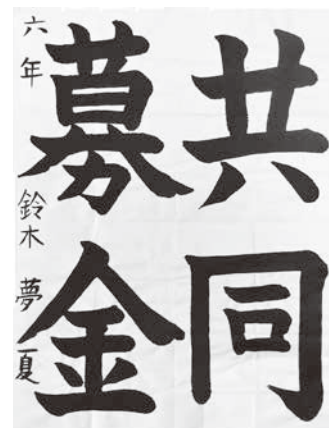 共同
募金
六年 鈴木 夢夏